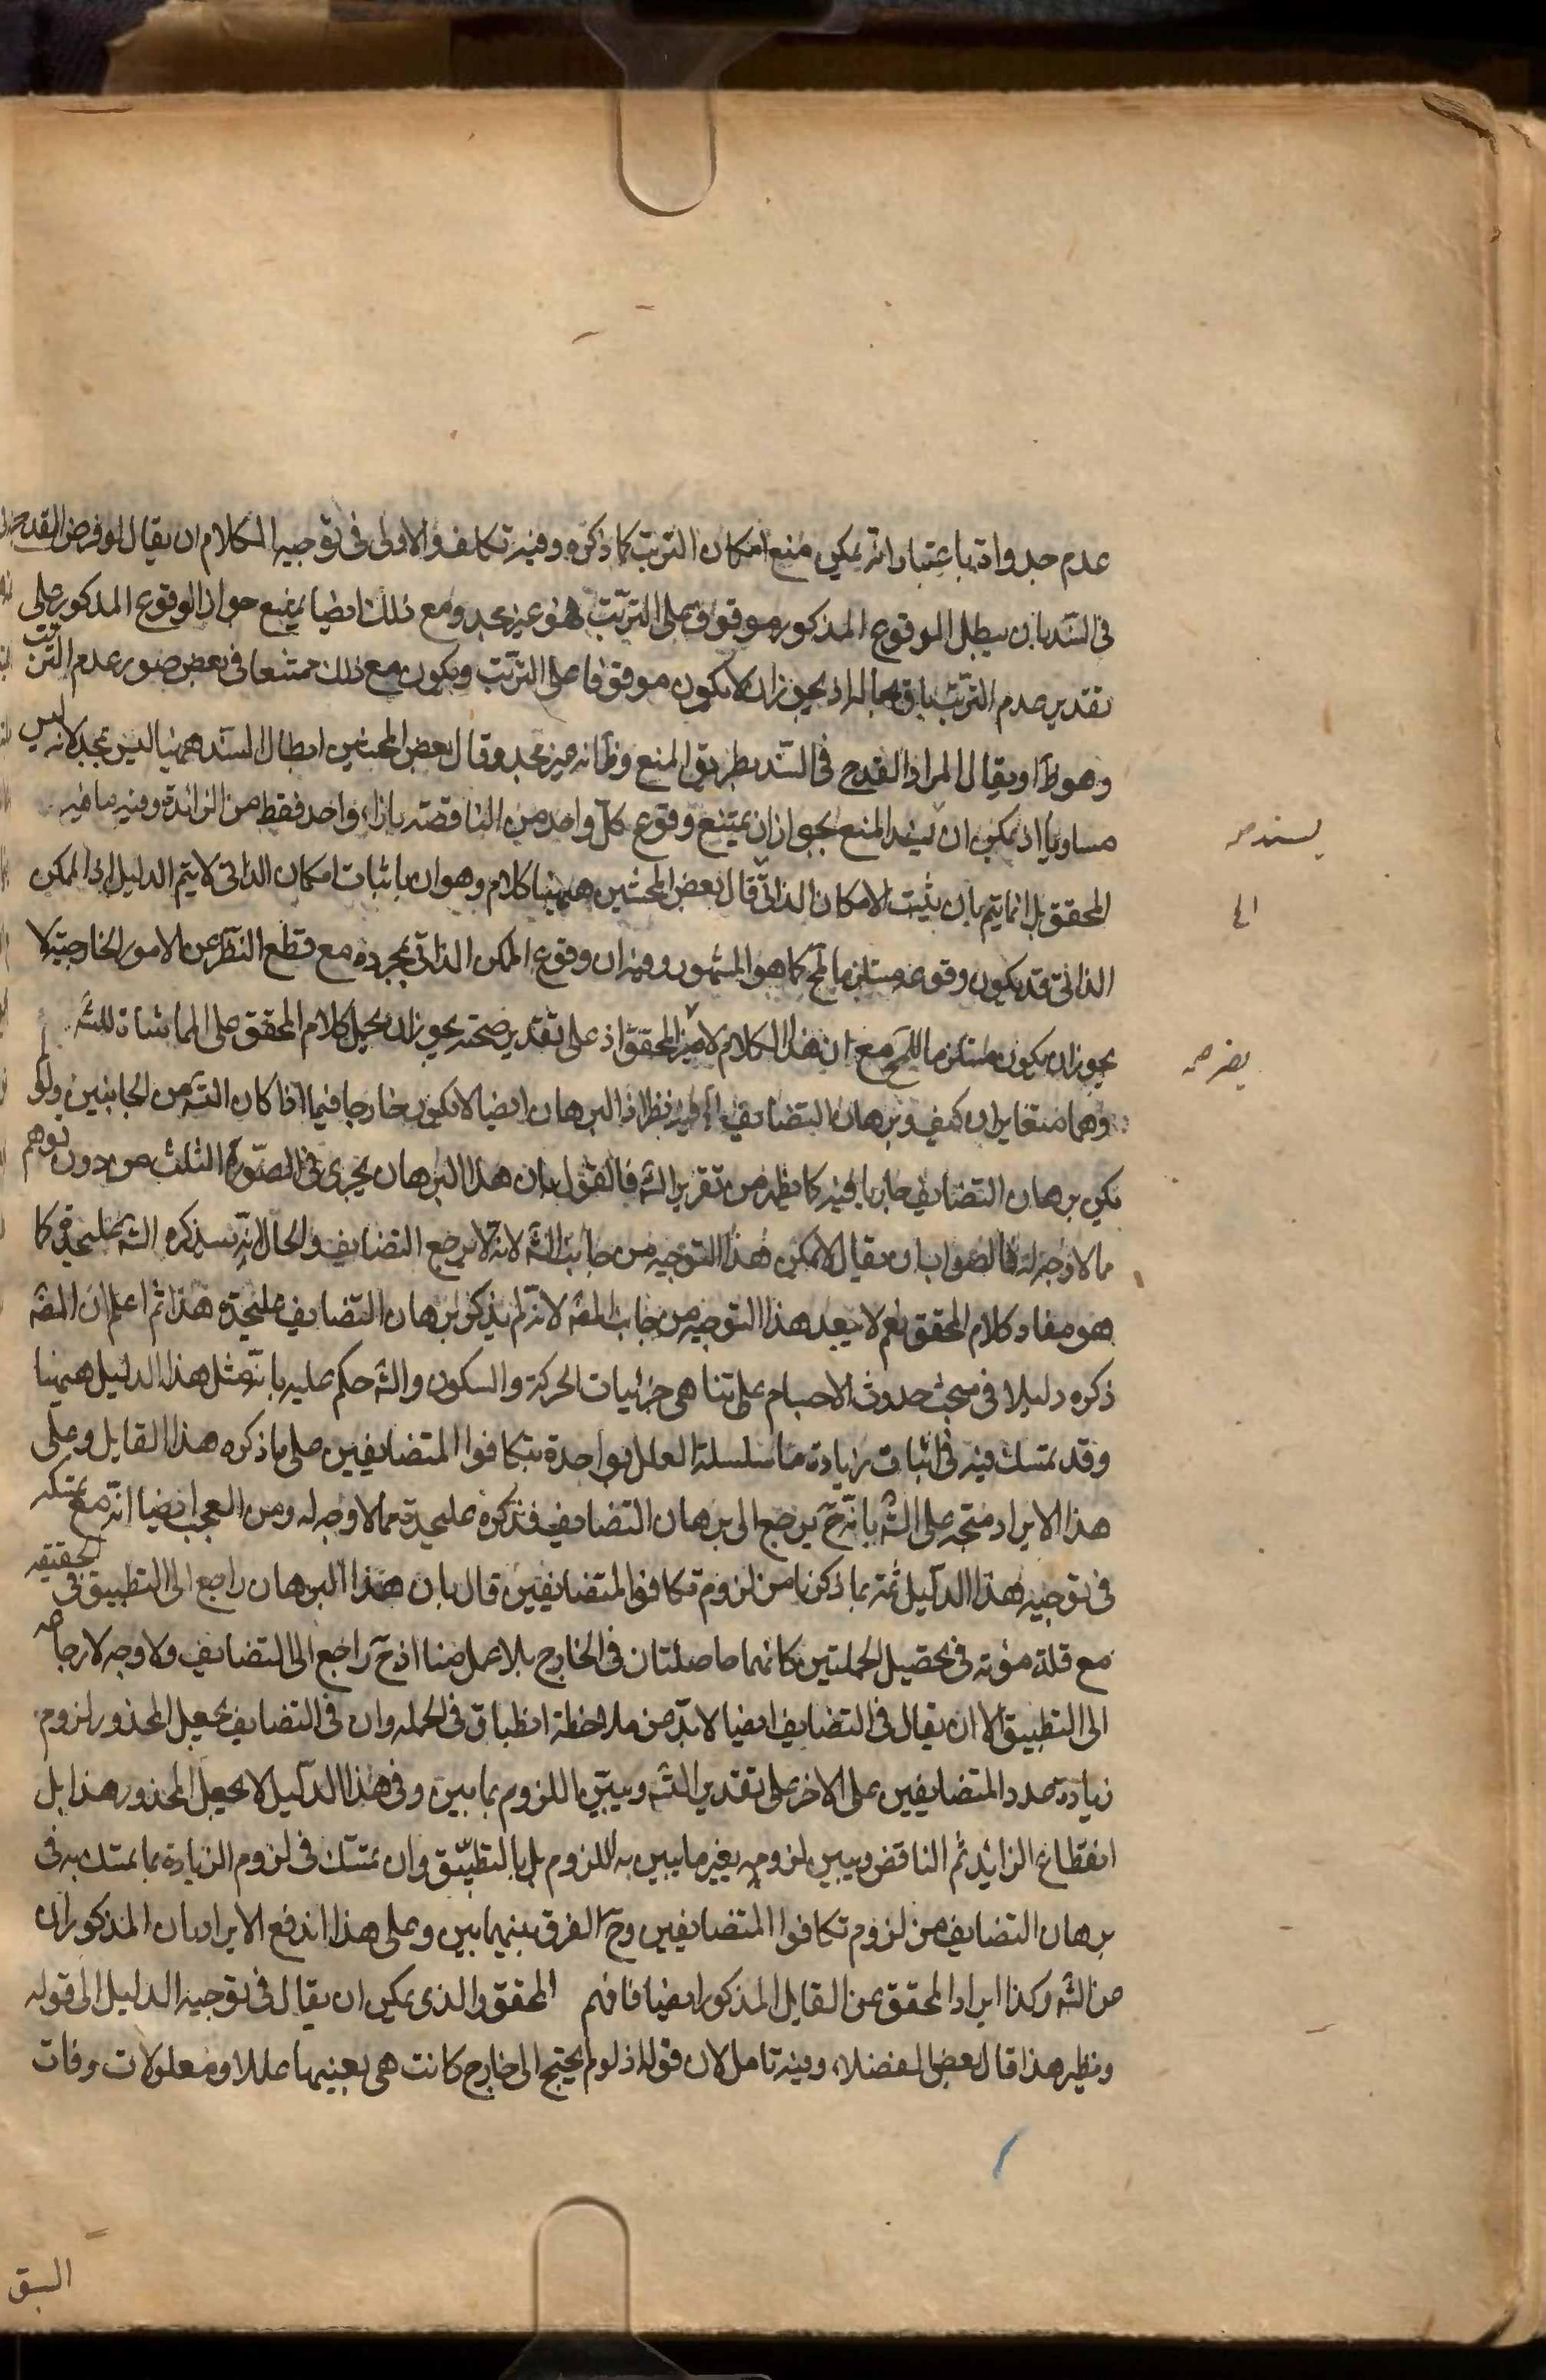 عدم جدواه باعتبار انه يمكن منع امكان الترتب كما ذكره وفيه تكلف والاولى فى توجيه الكلام ان يقال لو فرض القدح
فى السند بان يبطل الوقوع المذكور موقوف على الترتب فهو غير مجد ومع ذلك ايضا يمنع جواز الوقوع المذكور على
تقدير عدم الترتب باق بحاله اذ يجوز ان لا يكون موقوفا على الترتب ويكون مع ذلك ممتنعا فى بعض صور عدم الترتب
وهو ظ او يقال المراد القدح فى السند بطريق المنع وظ انه غير مجد وقال بعض المحشين ابطال السند ههنا ليس بمجد لانه ليس
مساويا اذ يمكن ان يسند المنع بجواز ان يمتنع وقوع كل واحد من الناقصة بازاء واحد فقط من الزائدة وفيه ما فيه
المحقق بل انما يتم بان يثبت الامكان الذاتى قال بعض المحشين ههنا كلام وهو ان باثبات امكان الذاتى لا يتم الدليل اذ الممكن
الذاتى قد يكون وقوعه مستلزما لمح كما هو المشهور وفيه ان وقوع الممكن الذاتى بمجرده مع قطع النظر عن الامور الخارجية لا
يجوز ان يكون مستلزما للمح مع ان هذا الكلام لا يضر المحقق اذ على تقدير صحته يجوز ان يحمل كلام المحقق على المماشاة للشه
وهما متغايران كيف وبرهان التضايف اه فيه نظر اذ البرهان ايضا لا يكون خارجا فيما اذا كان الته من الجانبين ولو
يكن برهان التضايف جاريا فيه كما يظهر من تقرير الشه فالقول بان هذا البرهان يجرى فى الصورة الثلث من دون توهم
مما لا وجه له فالصواب ان يقال لا يمكن هذا التوجيه من جانب الشه لانه لا يرجع التضايف والحال انه سيذكره الشه عليحدة كما
هو مفاد كلام المحقق نعم لا يبعد هذا التوجيه من جانب المصه لانه لم يذكر برهان التضايف عليحدة هذا ثم اعلم ان المصه
ذكره دليلا فى مبحث حدوث الاجسام على تنا هى جزئيات الحركة والسكون والشه حكم عليه بانه مثل هذا الدليل ههنا
وقد تمسك فيه فى اثبات زيادة ما سلسلة العلل بواحدة بتكافوا المتضايفين على ما ذكره هذا القايل وعلى
هذا الايراد متجه على الشه بانه ح يرجع الى برهان التضايف فذكره عليحدة مما لا وجه له ومن العجب ايضا انه مع تمسكه
فى توجيه هذا الدليل ثمة بما ذكرنا من لزوم تكافوا المتضايفين قال بان هذا البرهان راجع الى التطبيق فى الحقيقه
مع قلة مؤنه فى تحصيل الجملتين كانهما حاصلتان فى الخارج بلا عمل منا اذ ح راجع الى التضايف ولا وجه لارجاعه
الى التطبيق الا ان يقال فى التضايف ايضا لا بد من ملاحظة انطباق فى الجمله وان فى التضايف يجعل المحذور لزوم
زيادة عدد المتضايفين على الاخر على تقدير التسه ويبين اللزوم بما يبين وفى هذا الدليل لا يجعل المحذور هذا بل
انقطاع الزائد ثم الناقص ويبين لزومه بغير ما يبين به اللزوم بل بالتطبيق وان تمسك فى لزوم الزيادة بما تمسك به فى
برهان التضايف من لزوم تكافوا المتضايفين وح الفرق بينهما بين وعلى هذا اندفع الايرادان المذكوران
من الشه وكذا ايراد المحقق عن القايل المذكور ايضا فافهم المحقق والذى يمكن ان يقال فى توجيه الدليل الى قوله
ونظير هذا قال بعض الفضلاء وفيه تامل لان قوله اذ لو لم يحتج الى خارج كانت هى بعينها عللا ومعلولات وفات
يسند صح
الى
يضر صح
السبق